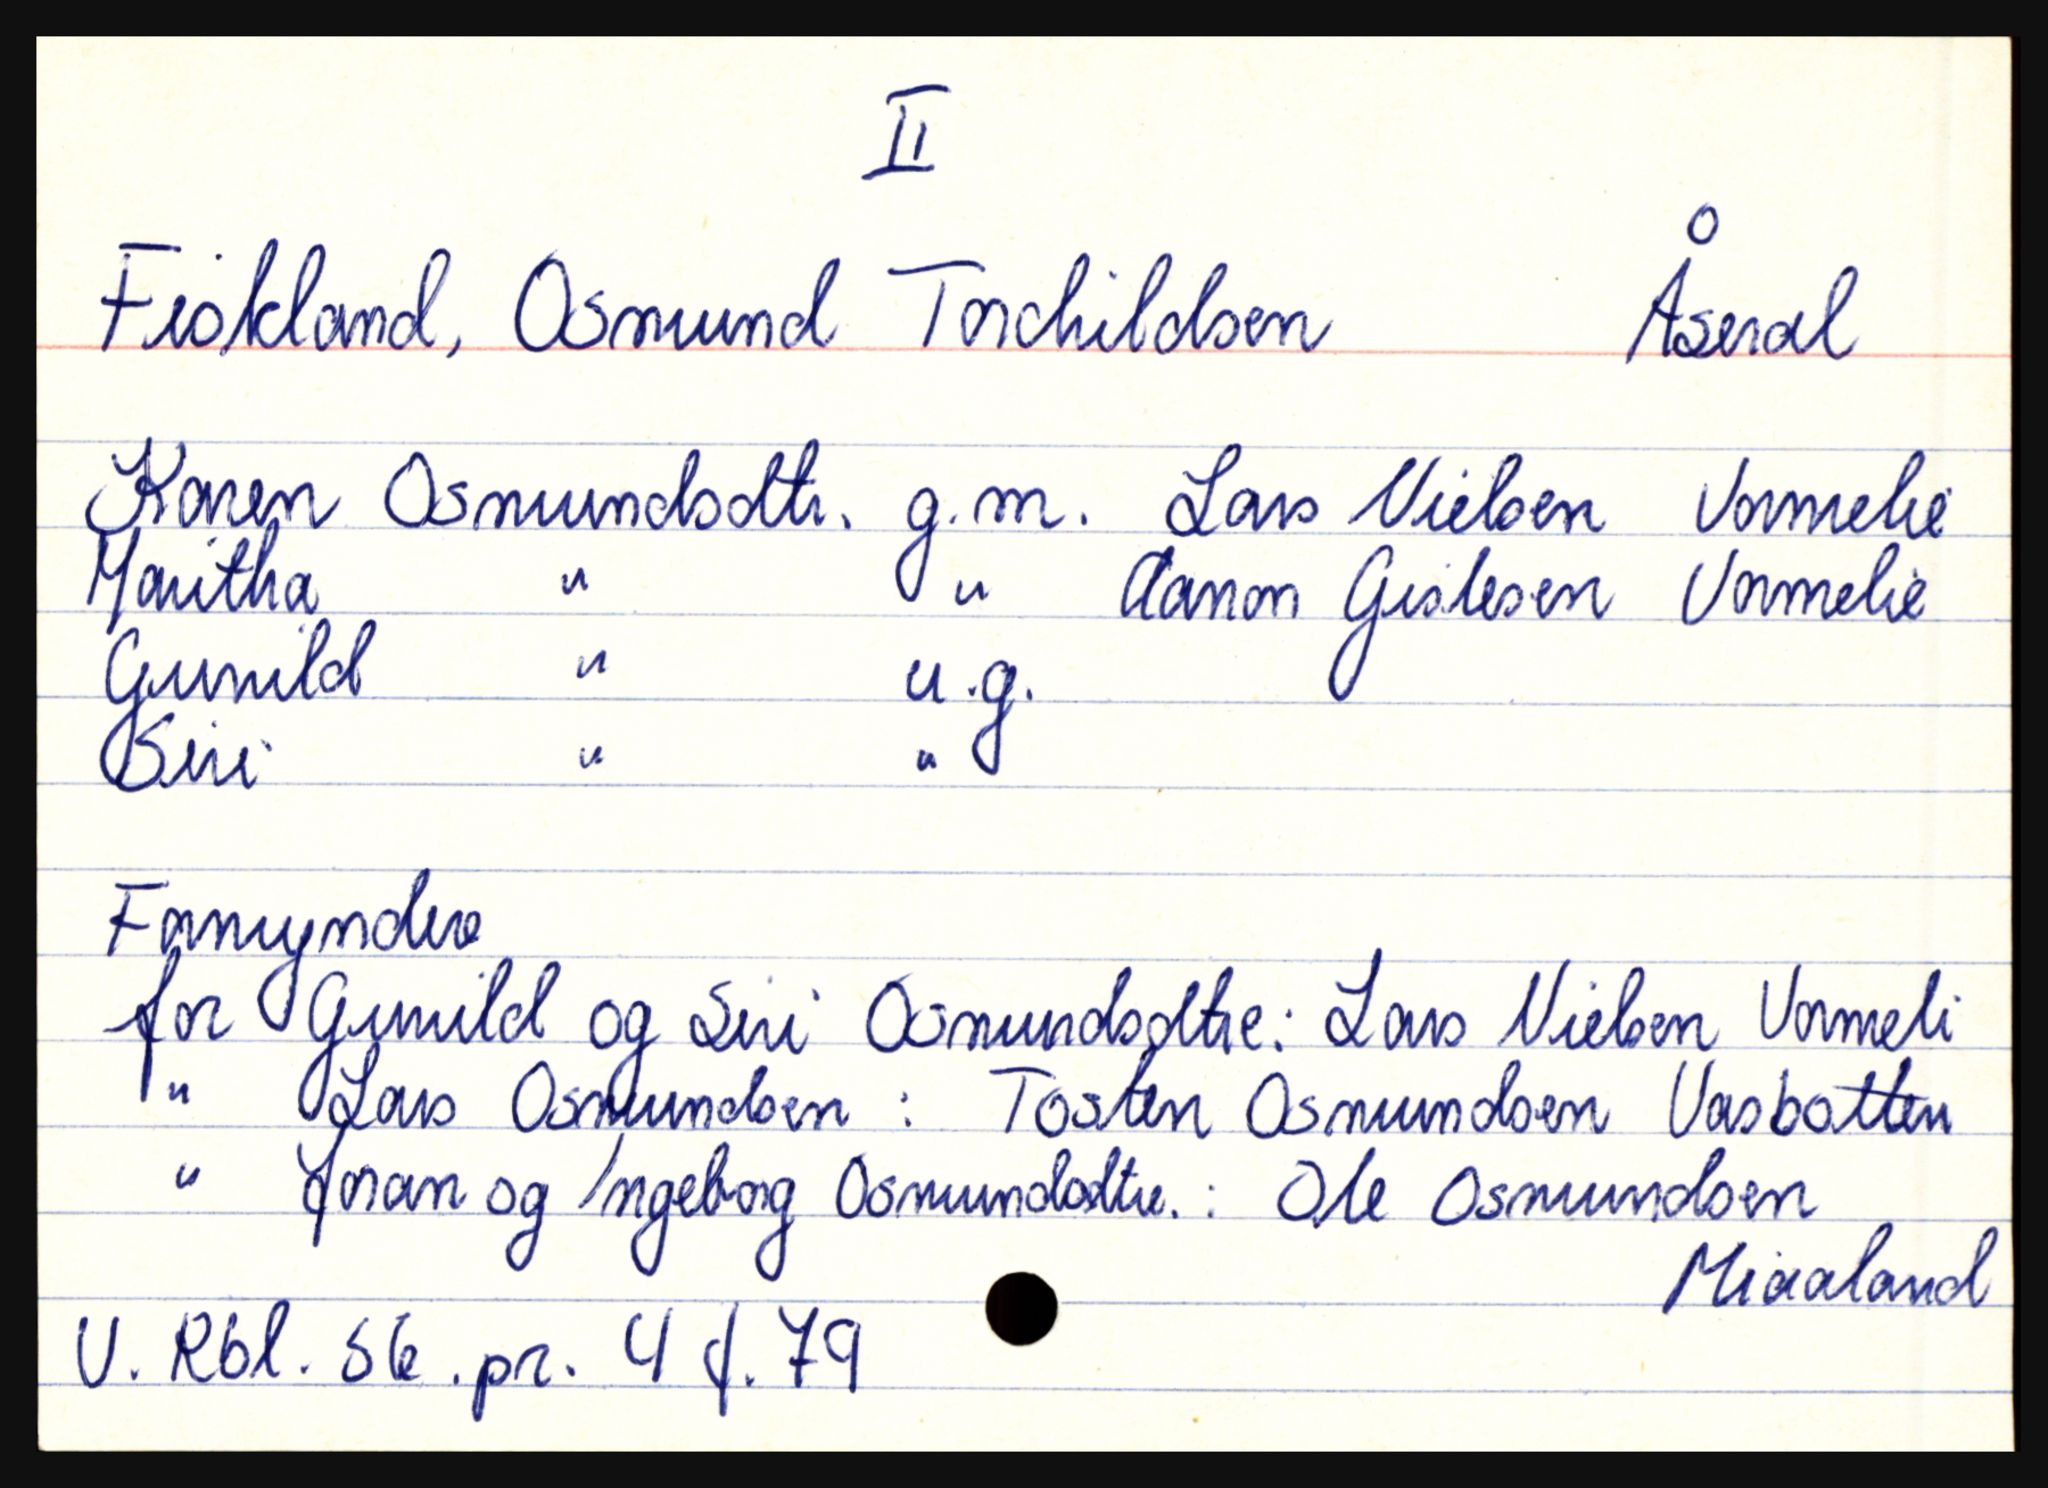 II
Fiskland, Osmund Torchildsen Åseral
Karen Osmundsdtr. g.m. Lars Nielsen Vormelie
Maritha " " Aanon Gislesen Vormelie
Gunild " u.g.
Siri " "
Formyndere
for Gunild og Siri Osmundsdtre: Lars Nielsen Vormeli
" Lars Osmundsen: Tosten Osmundsen Vasbotten
" Joran og Ingeborg Osmundsdtre.: Ole Osmundsen
Miaaland
V. Rbl. Sk. pr. 4 f. 79